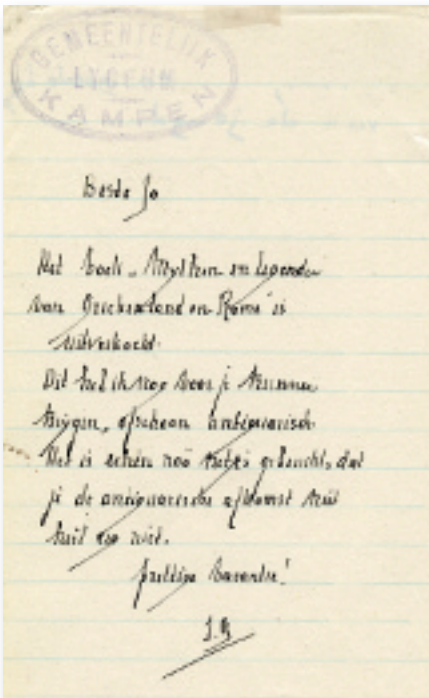 GEMEENTELIJK
LYCEUM
KAMPEN
Beste Jo
Het boek „Mythen en Legenden
van Griekenland en Rome" is
uitverkocht.
Dit heb ik nog voor je kunnen
krijgen, ofschoon antiquarisch.
Het is echter zoo netjes gebruikt, dat
je de antiquarische afkomst
niet.
prettige vacantie!